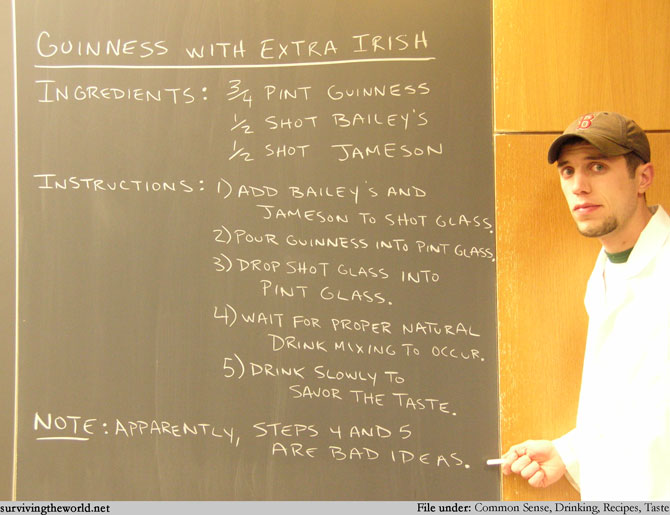 GUINNESS WITH EXTRA IRISH
INGREDIENTS: 3/4 PINT GUINNESS
1/2 SHOT BAILEY'S
1/2 SHOT JAMESON
INSTRUCTIONS: 1) ADD BAILEY'S AND
JAMESON TO SHOT GLASS.
2) POUR GUINNESS INTO PINT GLASS.
3) DROP SHOT GLASS INTO
PINT GLASS.
4) WAIT FOR PROPER NATURAL
DRINK MIXING TO OCCUR.
5) DRINK SLOWLY TO
SAVOR THE TASTE.
NOTE: APPARENTLY, STEPS 4 AND 5
ARE BAD IDEAS.
B
survivingtheworld.net File under: Common Sense, Drinking, Recipes, Taste